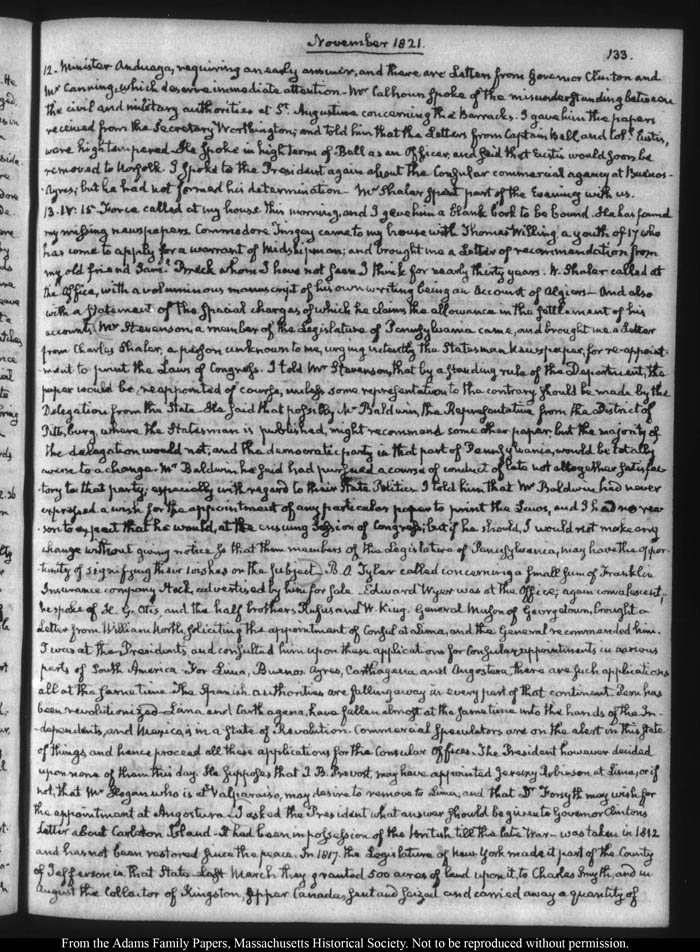 November 1821.
133.
12. Minister Anduaga, requiring an early answer, and there are Letters from Governor Clinton and
Mr Canning, which deserve immediate attention. Mr Calhoun spoke of the misunderstanding between
the civil and military authorities at St. Augustine concerning the Barracks. I gave him the papers
received from the Secretary Worthington; and told him that the Letters from Captain Bell and Col. Eustis,
were high tempered. He spoke in high terms of Bell as an Officer, and said that Eustis would soon be
removed to Norfolk. I spoke to the President again about the Consular commercial agency at Buenos-
Ayres; but he had not formed his determination. Mr Shaler spent part of the Evening with us.
13. IV. 15. Force called at my house this morning, and I gave him a blank book to be bound. He has found
my missing newspapers. Commodore Tingey came to my house with Thomas Willing a youth of 17 who
has come to apply for a warrant of Midshipman; and brought me a Letter of recommendation from
my old friend Saml. Breck whom I have not seen I think for nearly thirty years. W. Shaler called at
the Office, with a voluminous manuscript of his own writing being an Account of Algiers. And also
with a Statement of the special charges of which he claims the allowance in the settlement of his
accounts. Mr Stevenson a member of the Legislature of Pennsylvania came, and brought me a Letter
from Charles Shaler, a person unknown to me, urging instantly the Statesman Newspaper, for re-appoint-
ment to print the Laws of Congress. I told Mr Stevenson, that by a standing rule of the Department, the
paper would be re-appointed of course, unless some representation to the contrary should be made by the
Delegation from the State. He said that possibly Mr Baldwin, the Representative from the District of
Pittsburg, where the Statesman is published, might recommend some other paper, but the majority of
the delegation would not, and the democratic party in that part of Pennsylvania, would be totally
averse to a change. Mr Baldwin he said had pursued a course of conduct of late not altogether satisfac-
tory to that party; especially with regard to their State Politics. I told him that Mr Baldwin had never
expressed a wish for the appointment of any particular paper to print the Laws, and I had no rea-
son to expect that he would, at the ensuing Session of Congress; but if he should, I would not make any
change without giving notice so that the members of the Legislature of Pennsylvania, may have the oppor-
tunity of signifying their wishes on the subject. B. O. Tyler called concerning a small sum of Franklin
Insurance company stock, advertised by him for sale. Edward Wyer was at the Office; again convalescent;
he spoke of H. G. Otis, and the half brothers Rufus and W. King. General Mason of Georgetown, brought a
Letter from William North, soliciting the appointment of Consul at Lima, and the General recommended him.
I was at the President's and consulted him upon these applications for Consular appointments in various
parts of South America. For Lima, Buenos Ayres, Carthagena and Angostura, there are such applications
all at the same time. The Spanish authorities are falling away in every part of that continent. Peru has
been revolutionized. Lima and Carthagena, have fallen almost at the same time into the hands of the In-
dependents, and Mexico is in a State of Revolution. Commercial Speculators are on the alert in this state
of things and hence proceed all these applications for the Consular Offices. The President however decided
upon none of them this day. He supposes that J. B. Prevost, may have appointed Jeremy Robinson at Lima, or if
not, that Mr Hogan who is at Valparaiso, may desire to remove to Lima, and that Dr Forsyth may wish for
the appointment at Angostura. I asked the President what answer should be given to Governor Clinton's
Letter about Carleton Island. It had been in possession of the British till the late War. was taken in 1812
and has not been restored since the peace. In 1817 the Legislature of New York made it part of the County
of Jefferson in that State. Last March they granted 500 acres of land upon it, to Charles Smyth, and in
August the Collector of Kingston, Upper Canada, sent and seized and carried away a quantity of
From the Adams Family Papers, Massachusetts Historical Society. Not to be reproduced without permission.